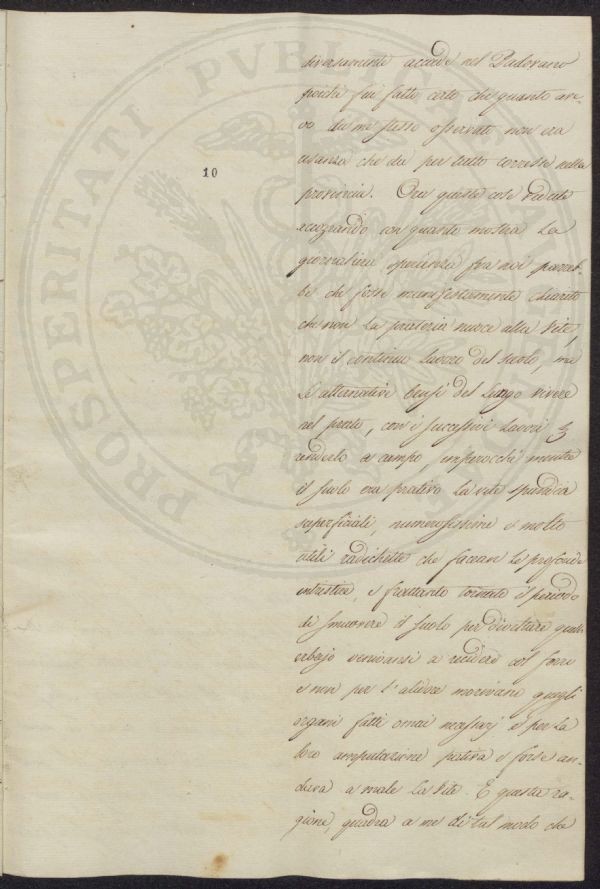 10
diversamente accade nel Padovano
poichè fui fatto certo che quanto ave-
vo da me stesso osservato non era
usanza che da per tutto corresse nella
provincia. Ora queste cose vedute
recuzando con quanto mostra la
giornaliera sperienza fra noi parreb-
be che fosse manifestamente chiarito
che non la prateria nuoce alla vite,
non il continuo lavoro del suolo, ma
le alternative bensì del lungo vivere
nel prato, con i successivi lavori
renderlo a campo, imperocchè mentre
il suolo era prativo la vite spandea
superficiali, numerosissime e molto
utili radichette che facean le profonde
intristire, e frattanto tornato il periodo
di smuovere il suolo per divettare quell'
erbajo venivansi a recidere col ferro
e non per l'aliena morivano quegli
organi fatti omai necessarj e per la
loro amputazione pativa e forse an-
dava a male la vite. E questa ra-
gione, quadra a me di tal modo che
PROSPERITATI PUBLICAE